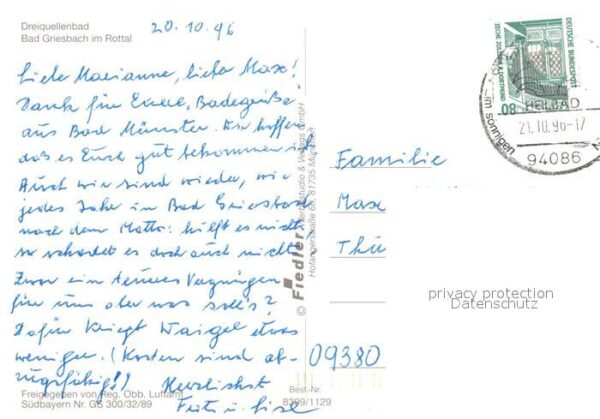 Dreiquellenbad
Bad Griesbach im Rottal
20.10.96
Liebe Marianne, lieber Max!
Dank für Euere Badegrüße
aus Bad Münster. Wir hoffen
daß es Euch gut bekommen ist.
Auch wir sind wieder, wie
jedes Jahr in Bad Griesbach
nach dem Motto: hilft es nicht,
so schadet es doch auch nicht.
Zwar ein teueres Vergnügen
für uns aber was soll's?
Dafür kriegt Waigel etwas
weniger. (Kosten sind ab-
zugsfähig!)
Herzlichst
Fritz u. Lise
Freigegeben von Reg. Obb. Luftamt
Südbayern Nr. GS 300/32/89
Best-Nr.
8399/1129
© Fiedler
Hofangerstraße 81735 München
DEUTSCHE BUNDESPOST
ZECHE ZOLLERN II, DORTMUND
80
HEILBAD
21.10.96-17
94086
im sonnigen
Familie
Max
Thü
09380
privacy protection
Datenschutz